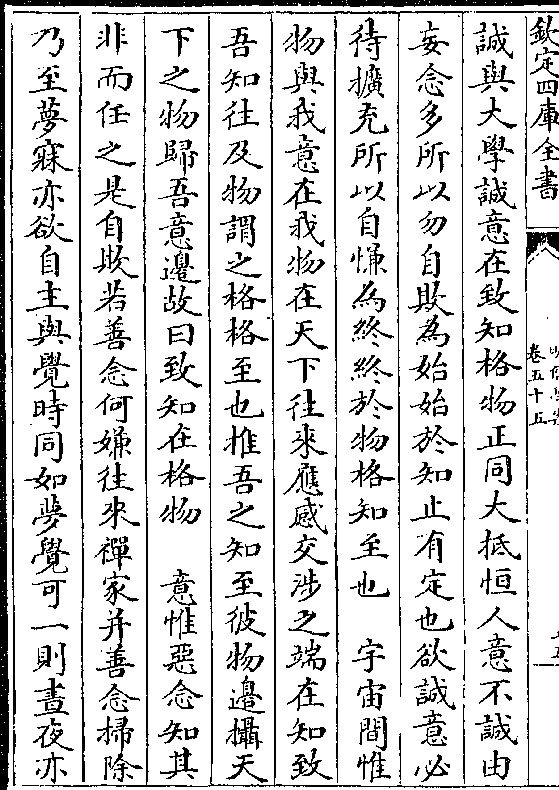 欽定四庫全書
卷五十五
誠與大學誠意在致知格物正同大抵恒人意不誠由
妄念多所以勿自欺為始始於知止有定也欲誠意必
待擴充所以自慊為終終於物格知至也　宇宙間惟
物與我意在我物在天下往來應感交涉之端在知致
吾知往及物謂之格格至也推吾之知至彼物邊攝天
下之物歸吾意邊故曰致知在格物　意惟惡念知其
非而任之是自欺若善念何嫌往來禪家并善念掃除
乃至夢寐亦欲自主與覺時同如夢覺可一則晝夜亦